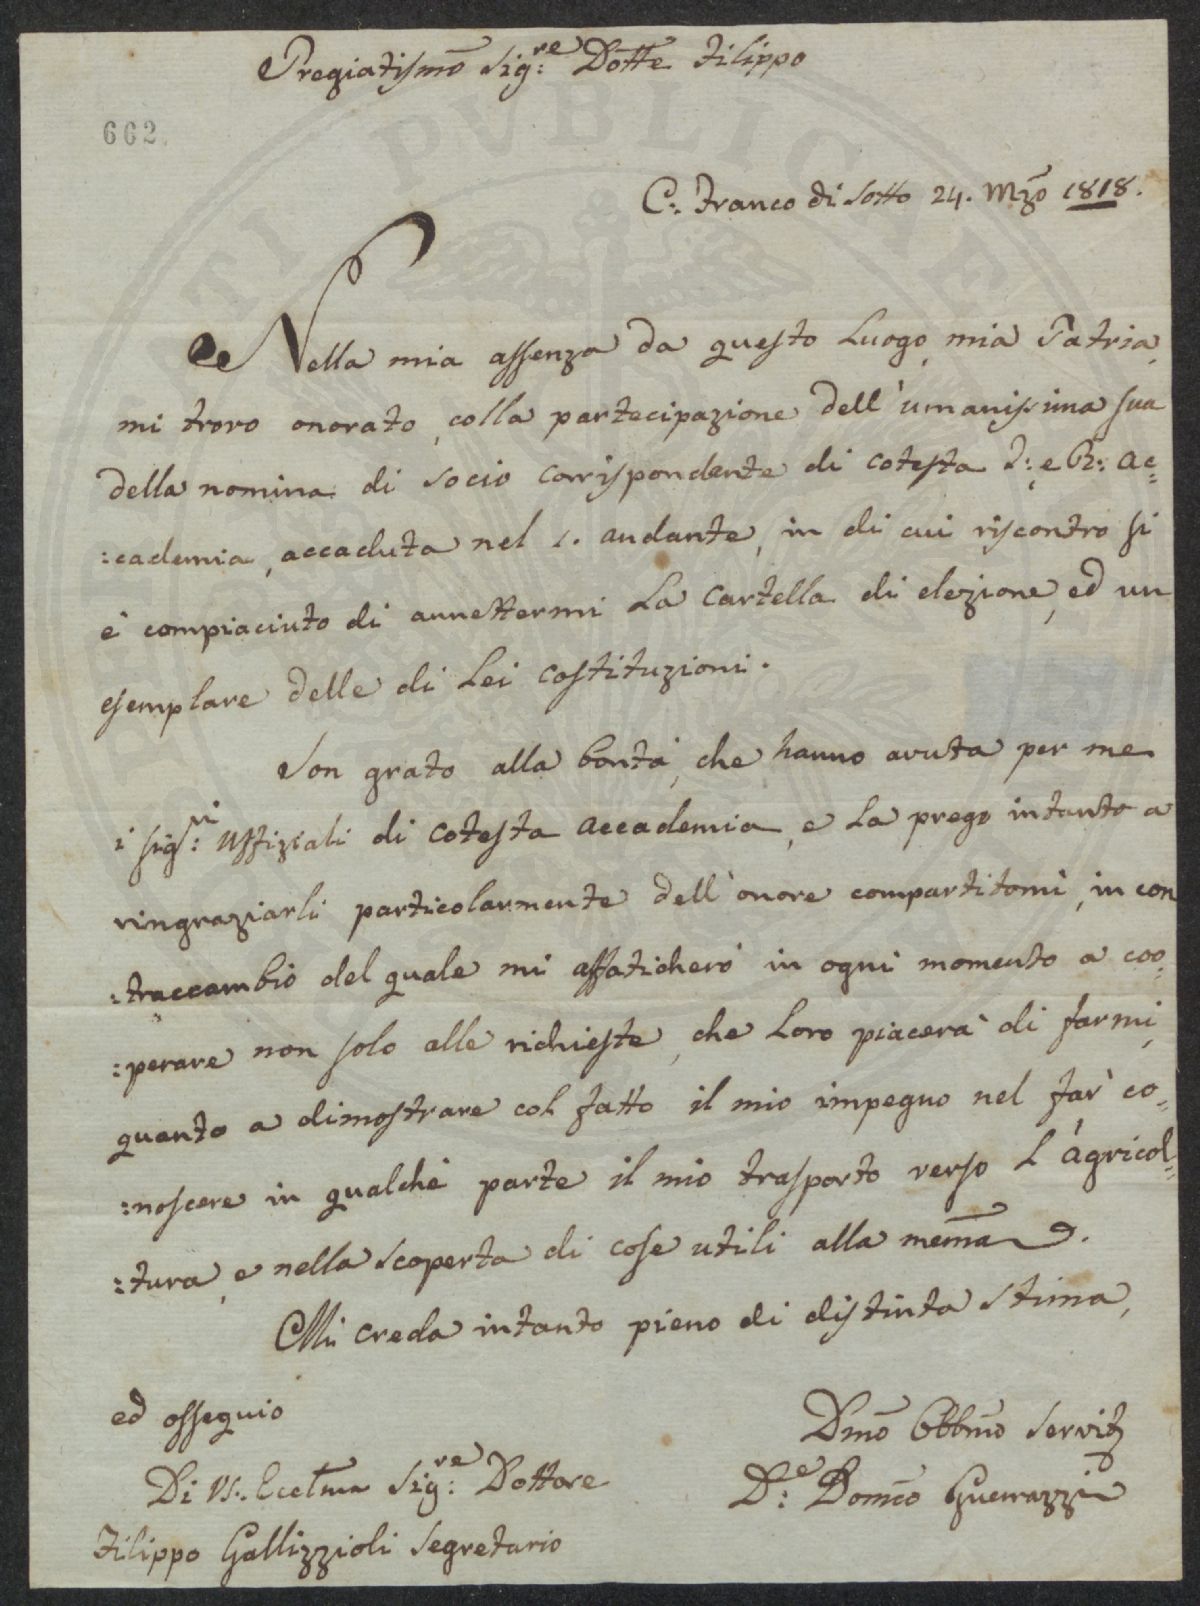 Pregiatismo Sig:re Dotte Filippo
662
C: Franco di Sotto 24. Mzo 1818.
Nella mia assenza da questo Luogo, mia Patria,
mi trovo onorato, colla partecipazione dell'umanissima sua
della nomina di socio corrispondente di cotesta I: e R: Ac=
:cademia, accaduta nel 1. andante, in di cui riscontro si
è compiaciuto di annettermi La Cartella di elezione, ed un
esemplare delle di Lei Costituzioni.
Son grato alla bontà, che hanno avuta per me
i sig:ri Uffiziali di cotesta Accademia, e La prego intanto a
ringraziarli particolarmente dell'onore compartitomi, in con
:traccambio del quale mi affaticherò in ogni momento a coo=
:perare non solo alle richieste, che Loro piacerà di farmi,
quanto a dimostrare col fatto il mio impegno nel far co=
:noscere in qualche parte il mio trasporto verso L'Agricol=
:tura, e nella scoperta di cose utili alla mema.
Mi creda intanto pieno di distinta stima,
ed ossequio
Di VS. Eccelma Sig:re Dottore
Filippo Gallizzioli Segretario
Dmo Obbmo Servit
D:e Domco Guerrazzi
PVBLICAE